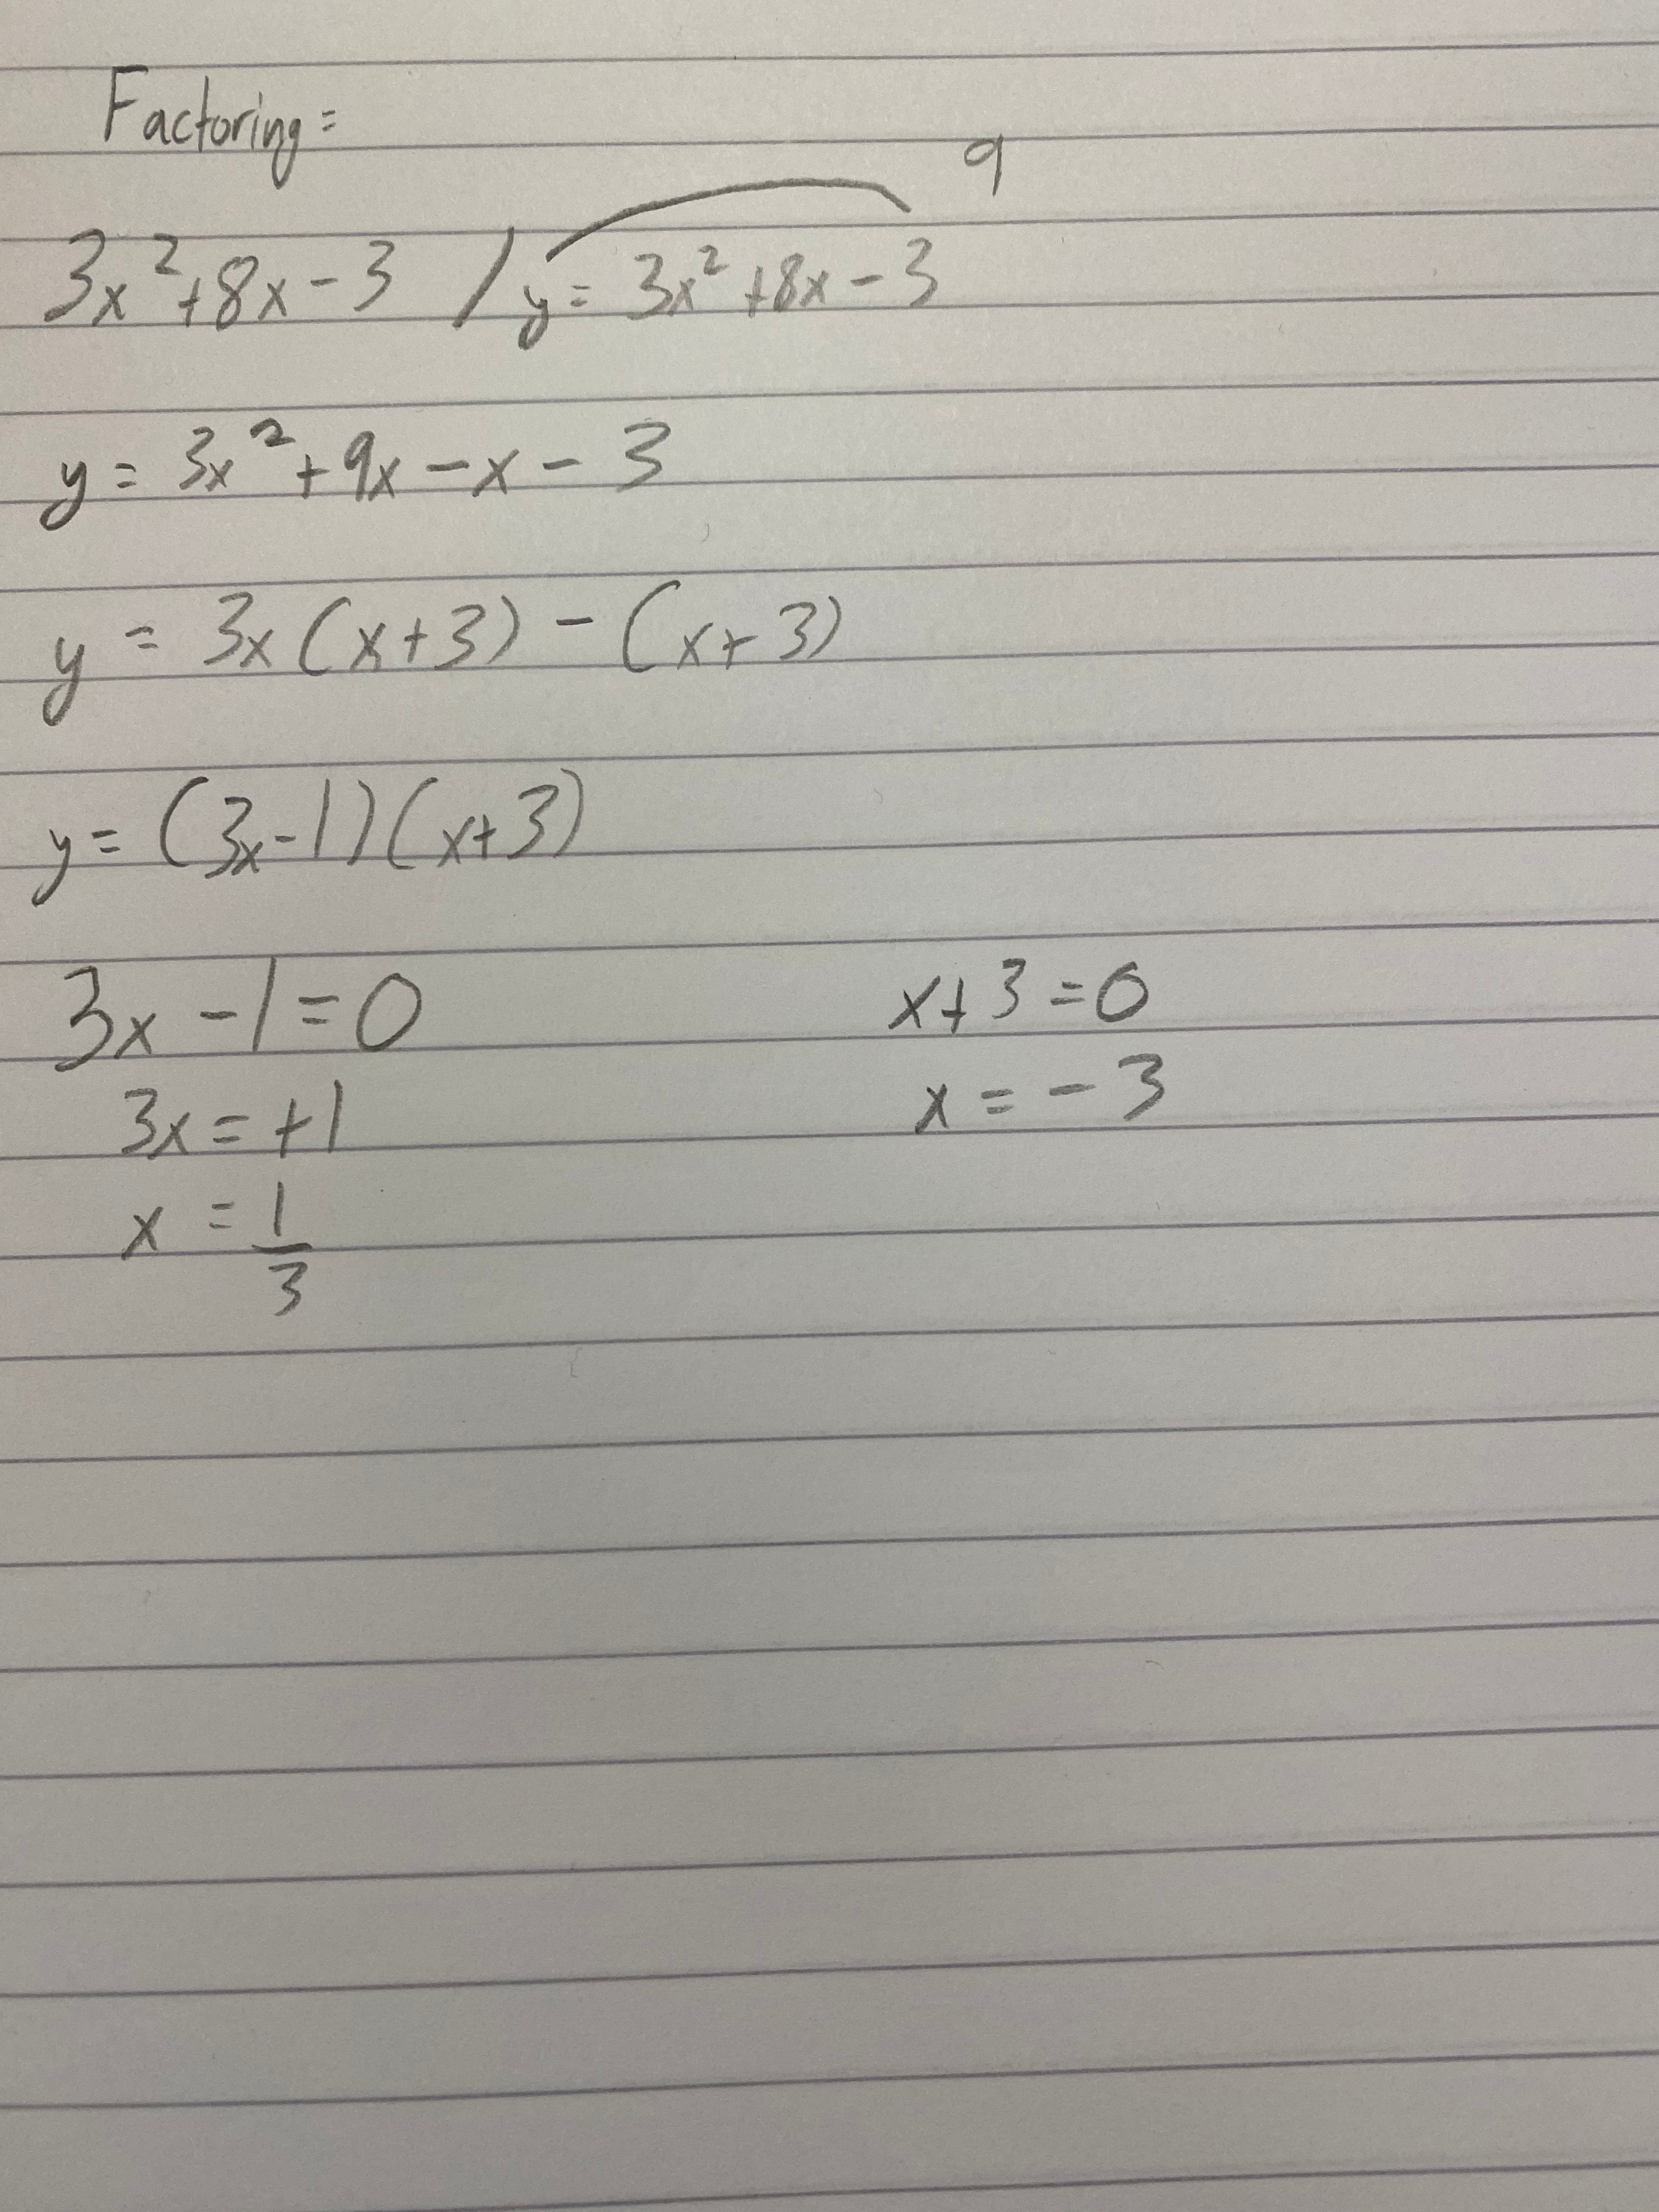 Factoring =
9
3x²+8x-3 / y = 3x² +8x - 3
y = 3x² + 9x - x - 3
y = 3x (x+3) - (x+3)
y = (3x-1)(x+3)
3x - 1 = 0
3x = +1
x = 1/3
x+3 = 0
x = -3